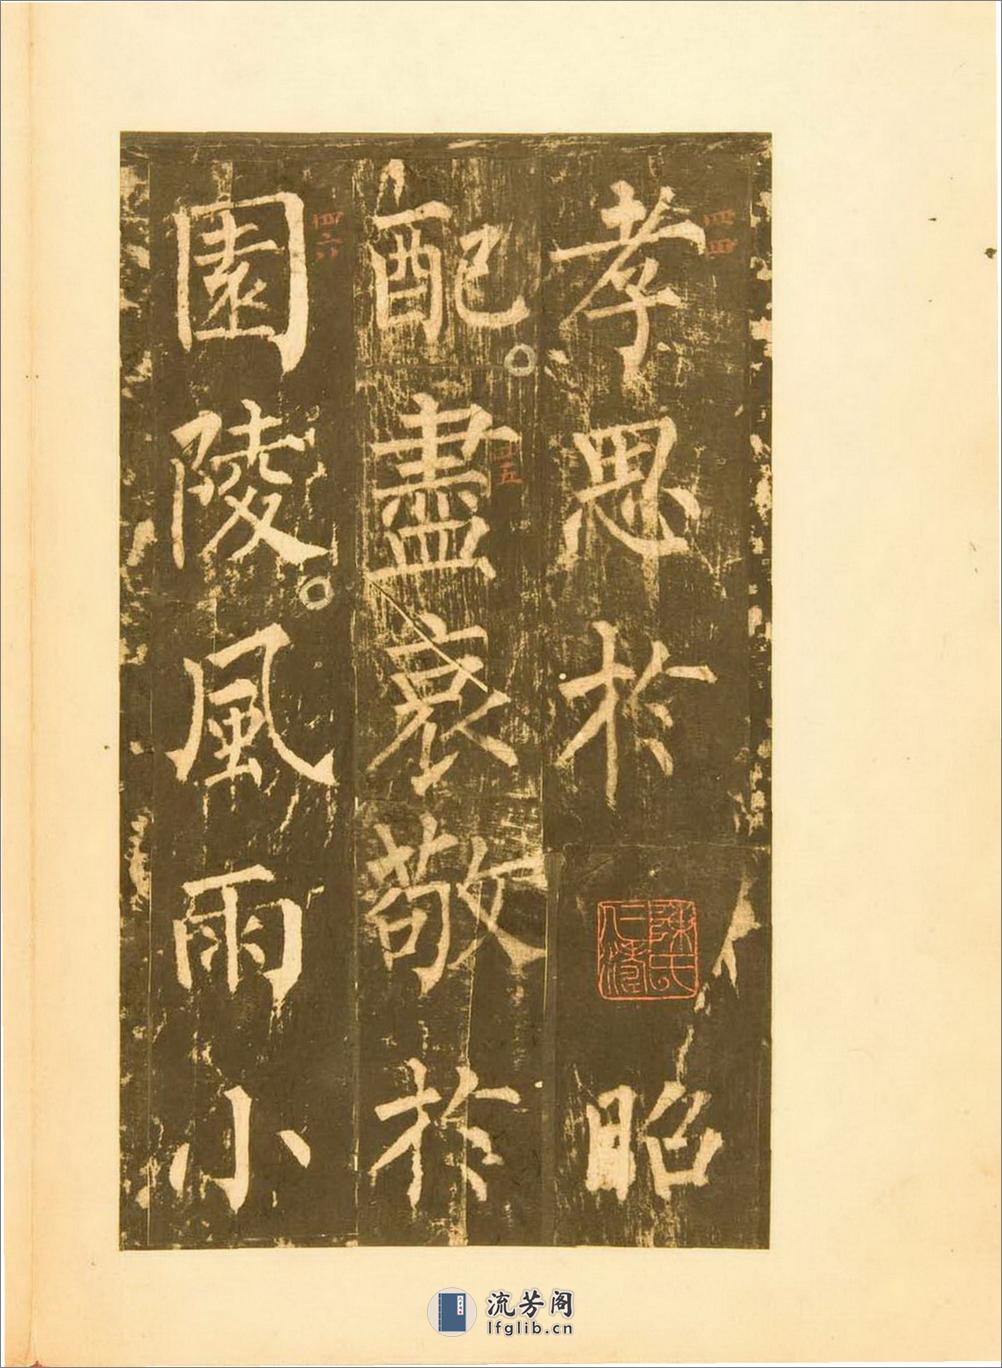 孝思於昭
配。盡哀敬於
園陵。風雨小
四四
五
四六
陳氏
流芳阁
lfglib.cn